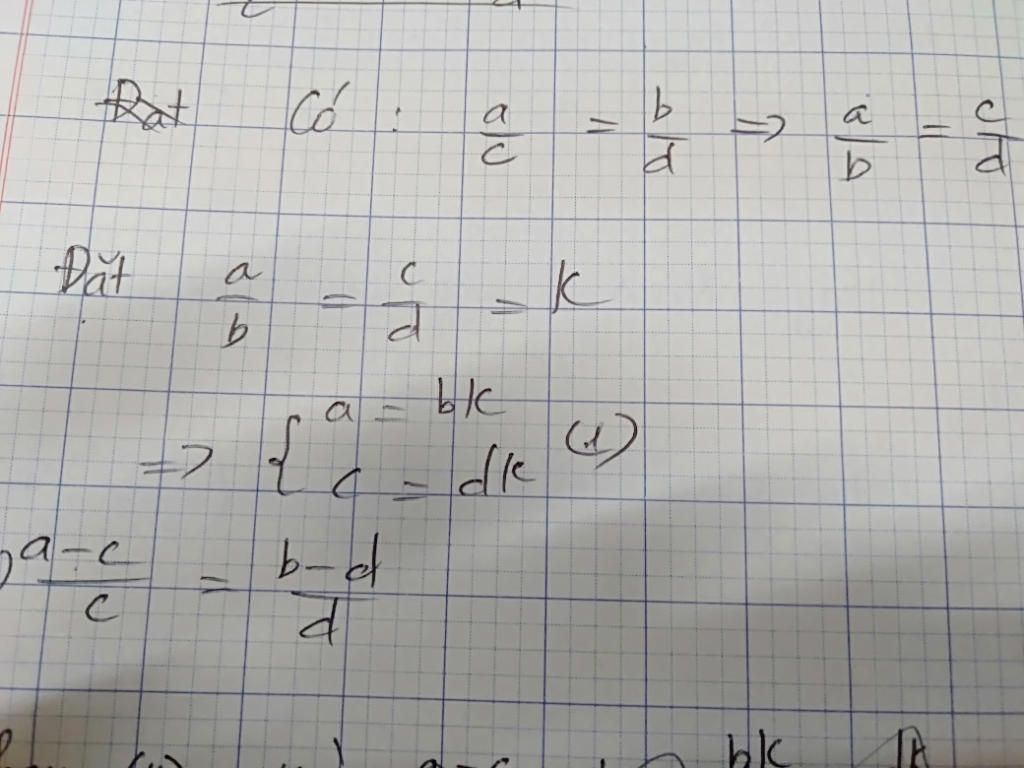 Đặt Có : a/c = b/d => a/b = c/d
Đặt a/b = c/d = k
=> { a = bk
c = dk (1)
) a-c/c = b-d/d
a-c bk